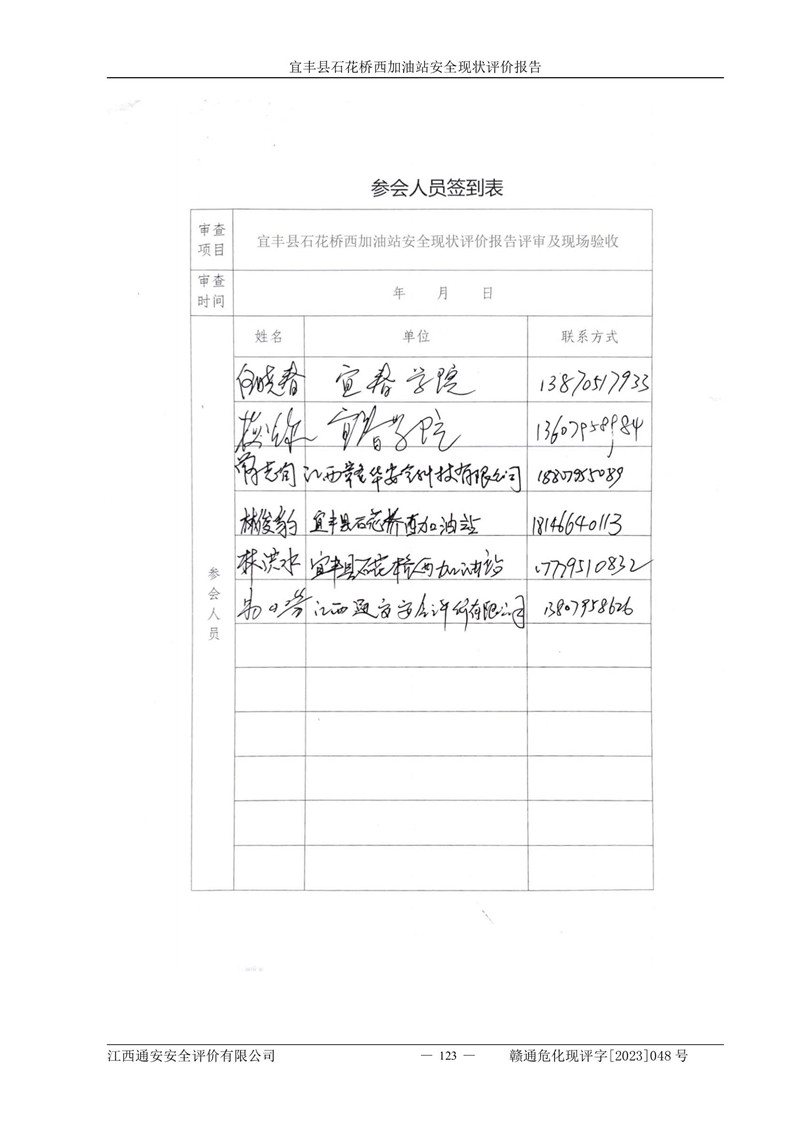 宜丰县石花桥西加油站安全现状评价报告
参会人员签到表
审查项目 宜丰县石花桥西加油站安全现状评价报告评审及现场验收
审查时间 年 月 日
参会人员
姓名 单位 联系方式
向晓春 宜春学院 13870517933
宜春学院 13607958984
江西赣华安全科技有限公司 18807955089
林俊豹 宜丰县石花桥西加油站 18146640113
林洪水 宜丰县石花桥西加油站 17779510832
江西通安安全评价有限公司 13807958626
江西通安安全评价有限公司 — 123 — 赣通危化现评字[2023]048 号